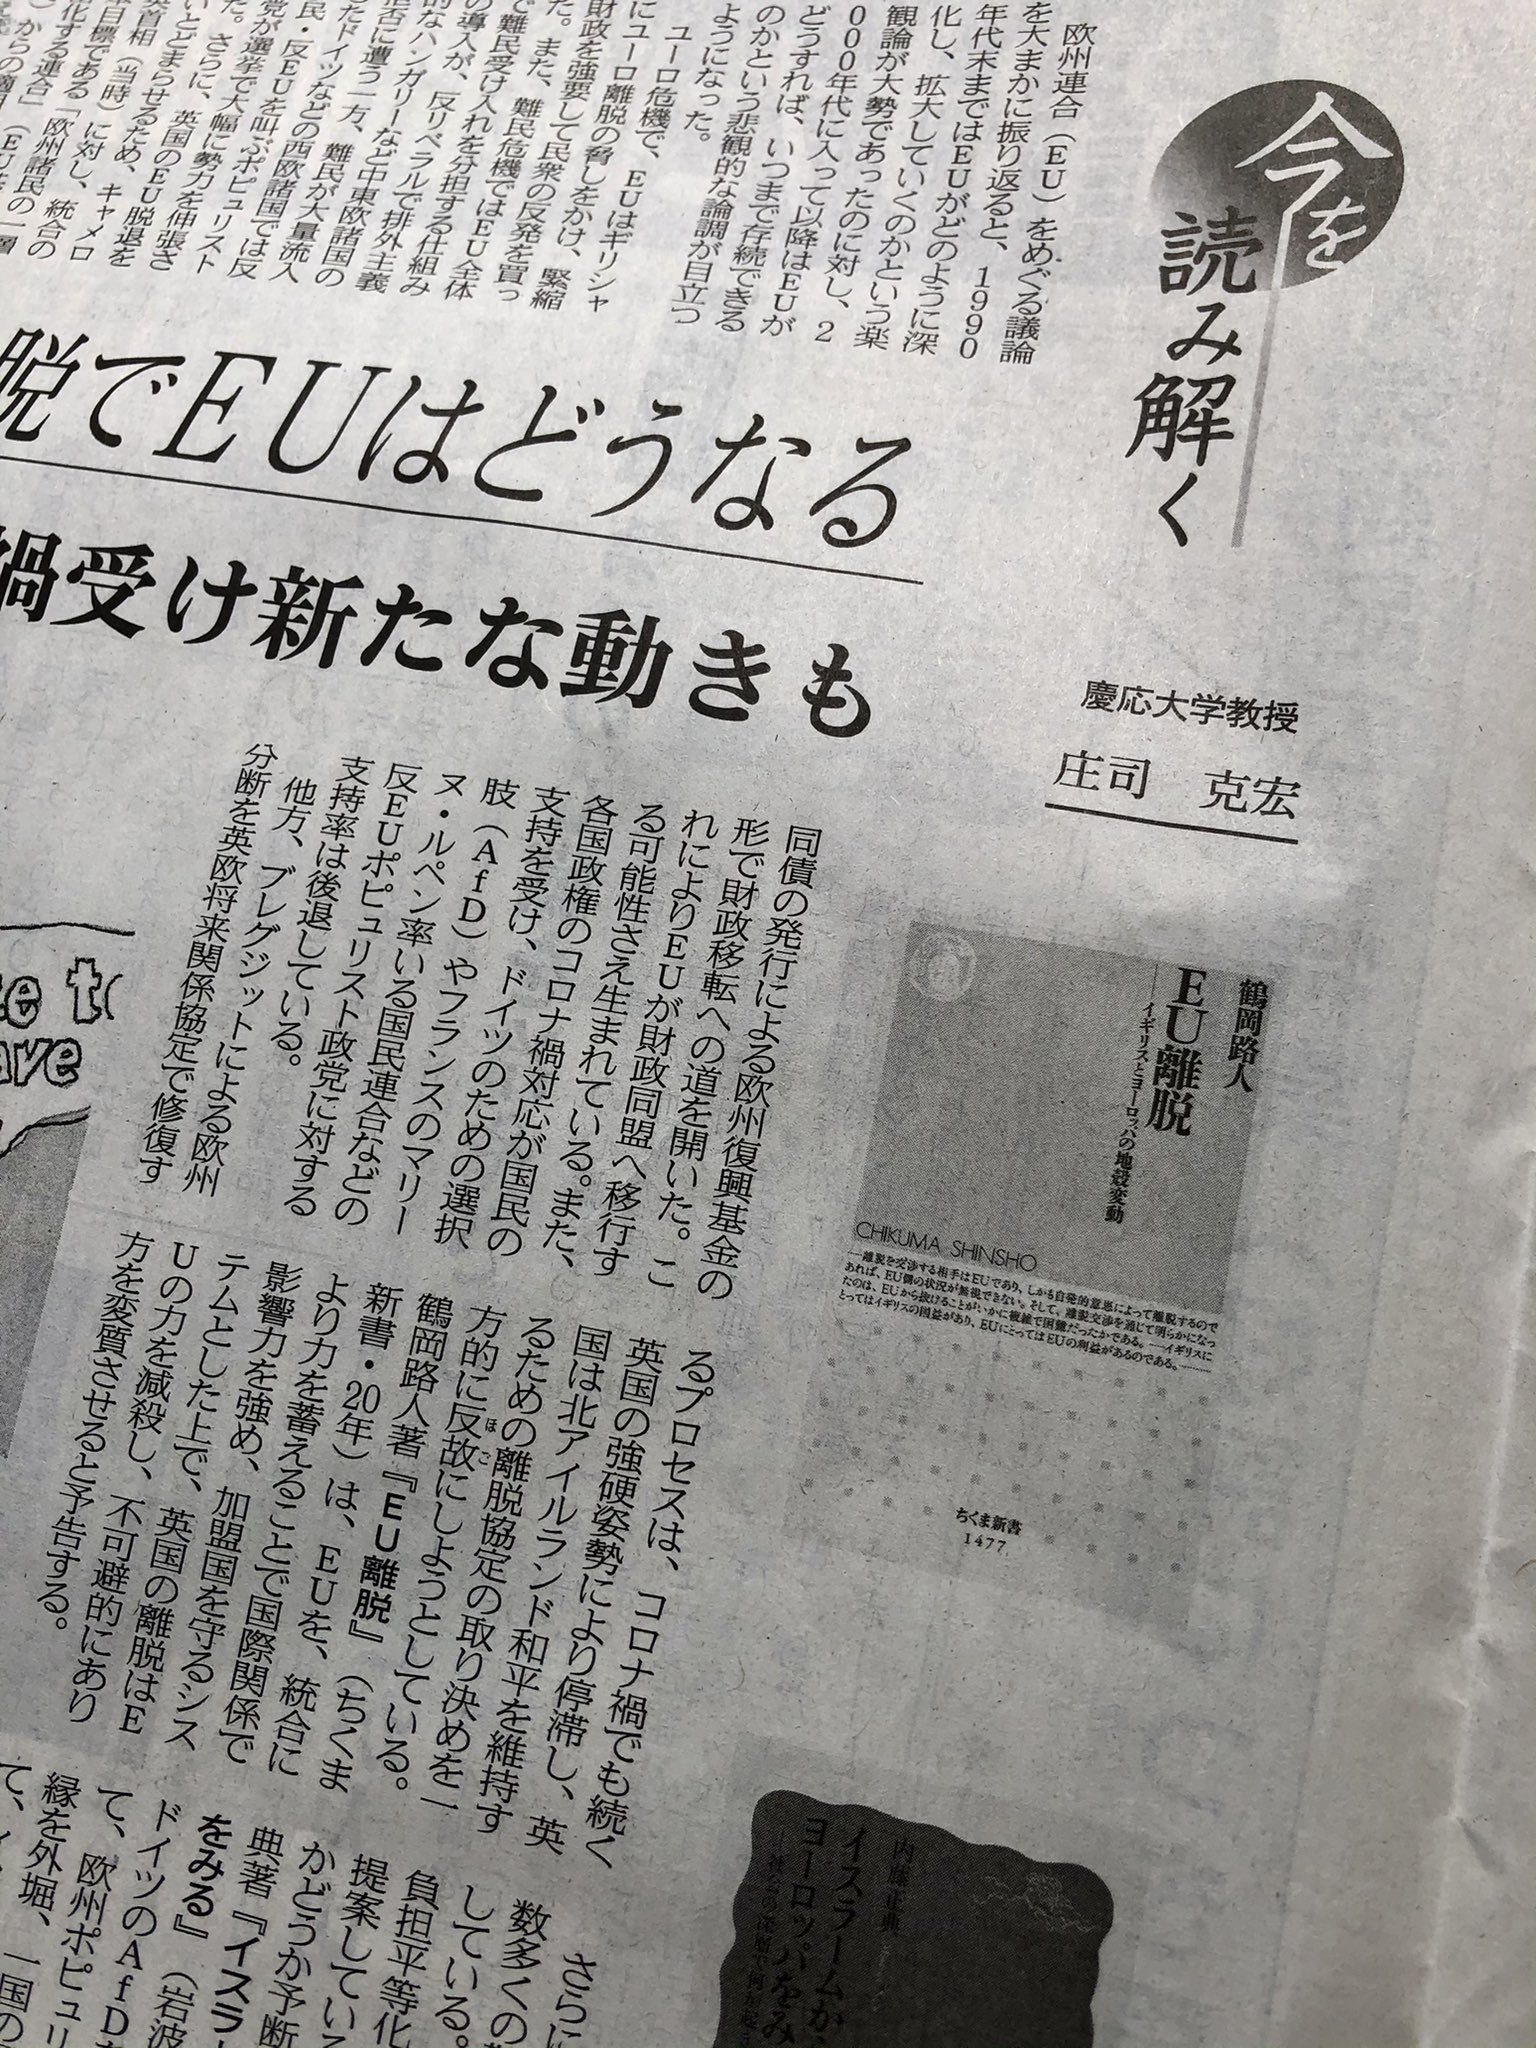 今を
読み解く
欧州連合（EU）をめぐる議論
を大まかに振り返ると、1990
年代末まではEUがどのように深
化し、拡大していくのかという楽
観論が大勢であったのに対し、2
000年代に入って以降はEUが
どうすれば、いつまで存続できる
のかという悲観的な論調が目立つ
ようになった。
ユーロ危機で、EUはギリシャ
にユーロ離脱の脅しをかけ、緊縮
財政を強要して民衆の反発を買っ
た。また、難民危機ではEU全体
で難民受け入れを分担する仕組み
の導入が、反リベラルで排外主義
的なハンガリーなど中東欧諸国の
拒否に遭う一方、難民が大量流入
したドイツなどの西欧諸国では反
民・反EUを叫ぶポピュリスト
党が選挙で大幅に勢力を伸張さ
た。さらに、英国のEU脱退を
いとどまらせるため、キャメロ
英首相（当時）に対し、統合の
目標である「欧州諸民の一層
化する連合」
脱でEUはどうなる
禍受け新たな動きも
慶応大学教授
庄司 克宏
同債の発行による欧州復興基金の
形で財政移転への道を開いた。こ
れによりEUが財政同盟へ移行す
る可能性さえ生まれている。また、
各国政権のコロナ禍対応が国民の
支持を受け、ドイツのための選択
肢（AfD）やフランスのマリー
ヌ・ルペン率いる国民連合などの
反EUポピュリスト政党に対する
支持率は後退している。
他方、ブレグジットによる欧州
分断を英欧将来関係協定で修復す
るプロセスは、コロナ禍でも続く
英国の強硬姿勢により停滞し、英
国は北アイルランド和平を維持す
るための離脱協定の取り決めを一
方的に反故にしようとしている。
ほご
鶴岡路人著『EU離脱』（ちくま
新書・20年）は、EUを、統合に
より力を蓄えることで国際関係で
影響力を強め、加盟国を守るシス
テムとした上で、英国の離脱はE
Uの力を減殺し、不可避的にあり
方を変質させると予告する。
さらに
数多くの
している。
負担平等化
提案している
かどうか予断
典著『イスラー
をみる』（岩波
ドイツのAfD
て、欧州ポピュリ
縁を外堀、一国の
鶴岡路人
EU離脱
イギリスとヨーロッパの地殻変動
CHIKUMA SHINSHO
――離脱を交渉する相手はEUであり、しかも自発的意思によって離脱するので
あれば、EU側の状況が無視できない。そして、離脱交渉を通じて明らかになっ
たのは、EUから抜けることがいかに複雑で困難だったかである。――イギリスに
とってはイギリスの国益があり、EUにとってはEUの利益があるのである。――
ちくま新書
1477
内藤正典
イスラームから
ヨーロッパをみる
te to
ave